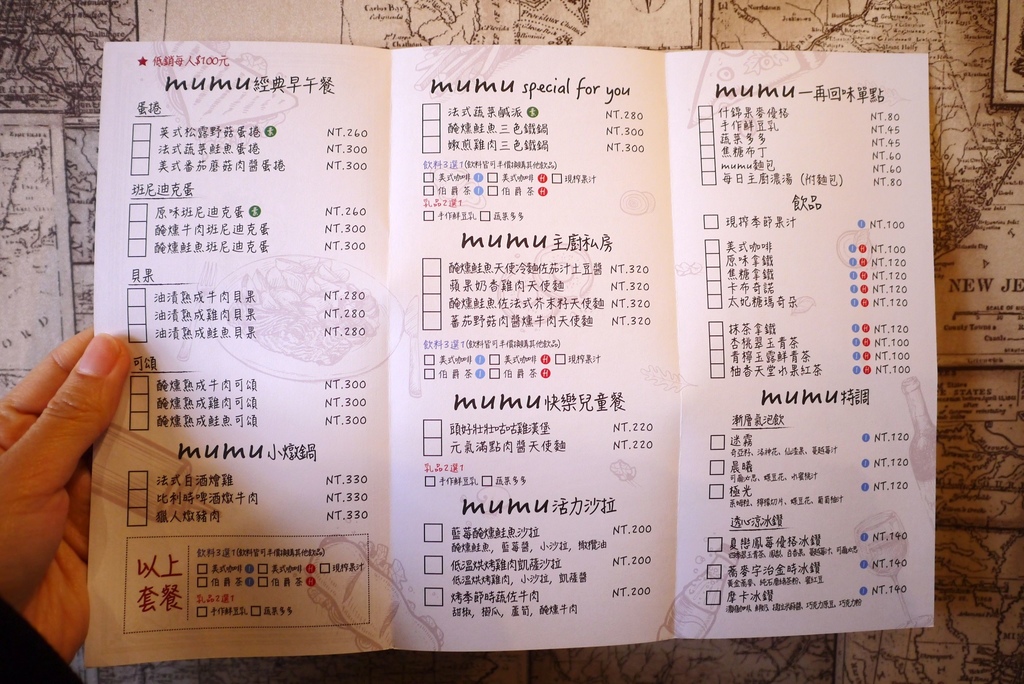 ★ 低銷每人$100元
mumu 經典早午餐
蛋捲
英式松露野菇蛋捲 素 NT.260
法式蔬菜鮭魚蛋捲 NT.300
美式番茄蘑菇肉醬蛋捲 NT.300
班尼迪克蛋
原味班尼迪克蛋 素 NT.260
醃燻牛肉班尼迪克蛋 NT.300
醃燻鮭魚班尼迪克蛋 NT.300
貝果
油漬熟成牛肉貝果 NT.280
油漬熟成雞肉貝果 NT.280
油漬熟成鮭魚貝果 NT.280
可頌
醃燻熟成牛肉可頌 NT.300
醃燻熟成雞肉可頌 NT.300
醃燻熟成鮭魚可頌 NT.300
mumu 小燉鍋
法式白酒燴雞 NT.330
比利時啤酒燉牛肉 NT.330
獵人燉豬肉 NT.330
以上套餐
飲料3選1(飲料皆可半價換購其他飲品)
美式咖啡 I 美式咖啡 H 現榨果汁
伯爵茶 I 伯爵茶 H
乳品2選1
手作鮮豆乳 蔬果多多
mumu special for you
法式蔬菜鹹派 素 NT.280
醃燻鮭魚三色鐵鍋 NT.300
嫩煎雞肉三色鐵鍋 NT.300
飲料3選1(飲料皆可半價換購其他飲品)
美式咖啡 I 美式咖啡 H 現榨果汁
伯爵茶 I 伯爵茶 H
乳品2選1
手作鮮豆乳 蔬果多多
mumu 主廚私房
醃燻鮭魚天使冷麵佐茄汁土豆醬 NT.320
蘋果奶香雞肉天使麵 NT.320
醃燻鮭魚佐法式芥末籽天使麵 NT.320
蕃茄野菇肉醬燻牛天使麵 NT.320
飲料3選1(飲料皆可半價換購其他飲品)
美式咖啡 I 美式咖啡 H 現榨果汁
伯爵茶 I 伯爵茶 H
mumu 快樂兒童餐
頭好壯壯咕咕雞漢堡 NT.220
元氣滿點肉醬天使麵 NT.220
乳品2選1
手作鮮豆乳 蔬果多多
mumu 活力沙拉
藍莓醃燻鮭魚沙拉 NT.200
醃燻鮭魚, 藍莓醬, 小沙拉, 橄欖油
低溫烘烤雞肉凱薩沙拉 NT.200
低溫烘烤雞肉, 小沙拉, 凱薩醬
烤季節時蔬佐牛肉 NT.200
甜椒, 櫛瓜, 蘆筍, 醃燻牛肉
mumu 一再回味單點
什錦果麥優格 NT.80
手作鮮豆乳 NT.45
蔬果多多 NT.45
焦糖布丁 NT.60
mumu麵包 NT.60
每日主廚濃湯 (附麵包) NT.80
飲品
現榨季節果汁 I NT.100
美式咖啡 I H NT.100
原味拿鐵 I H NT.120
焦糖拿鐵 I H NT.120
卡布奇諾 I H NT.120
太妃糖瑪奇朵 I H NT.120
抹茶拿鐵 I H NT.120
杏桃翠玉青茶 I H NT.120
青檸玉露鮮青茶 I H NT.120
柚香天堂水果紅茶 I H NT.100
mumu 特調
漸層氣泡飲
迷霧 I NT.120
晨曦 I NT.120
極光 I NT.120
透心涼冰鑽
夏戀鳳莓優格冰鑽 I NT.140
蕎麥宇治金時冰鑽 I NT.140
摩卡冰鑽 I NT.140
NEW JE